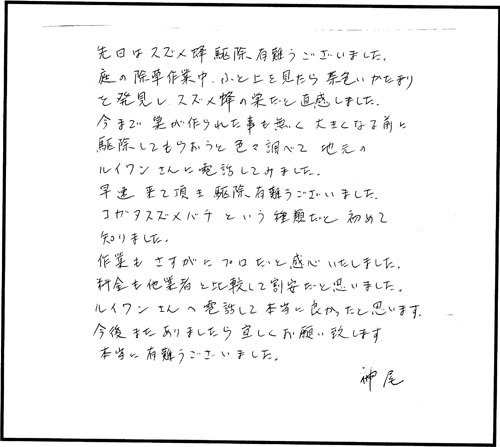 先日はスズメ蜂駆除有難うございました。
庭の除草作業中、ふと上を見たら茶色いかたまり
を発見し、スズメ蜂の巣だと直感しました。
今まで巣が作られた事も無く大きくなる前に
駆除してもらおうと色々調べて地元の
ルイワンさんに電話してみました。
早速来て頂き駆除有難うございました。
コガタスズメバチという種類だと初めて
知りました。
作業もさすがにプロだと感心いたしました。
料金も他業者と比較して割安だと思いました。
ルイワンさんへ電話して本当に良かったと思います。
今後またありましたら宜しくお願い致します
本当に有難うございました。
神尾